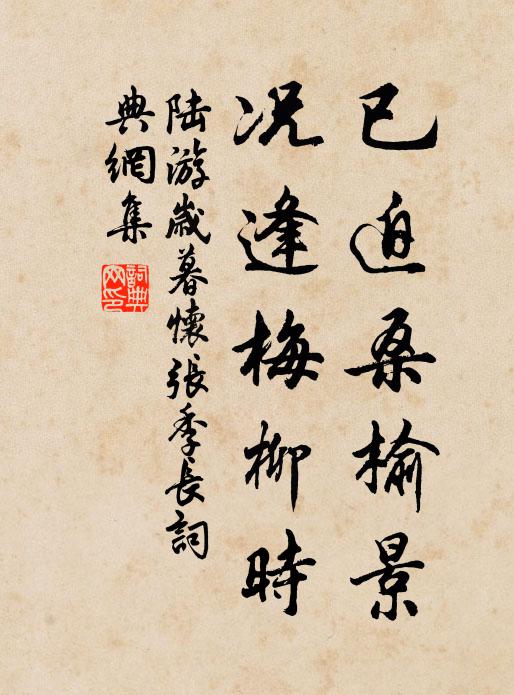 已迫桑榆景
况逢梅柳時
陆游歲暮懷張季長詞
典網集
詞典
网印